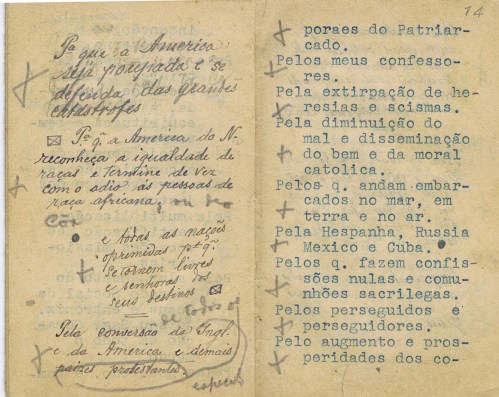 Pª que a America
seja poupada e se
defenda das grandes
catastrofes
Pª q. a America do N.
reconheça a igualdade de
raças e termine de vez
com o odio ás pessoas de
raça africana, ou de
Côr
e todas as nações
oprimidas pª q.
se tornem livres
e senhoras dos
seus destinos
de todos os
Pela conversão da Ingl.
e da America e demais
países protestantes.
14
poraes do Patriar-
cado.
Pelos meus confesso-
res.
Pela extirpação de he-
resias e scismas.
Pela diminuição do
mal e disseminação
do bem e da moral
catolica.
Pelos q. andam embar-
cados no mar, em
terra e no ar.
Pela Hespanha, Russia
Mexico e Cuba.
Pelos q. fazem confis-
sões nulas e comu-
nhões sacrilegas.
Pelos perseguidos e
perseguidores.
Pelo augmento e pros-
peridades dos co-